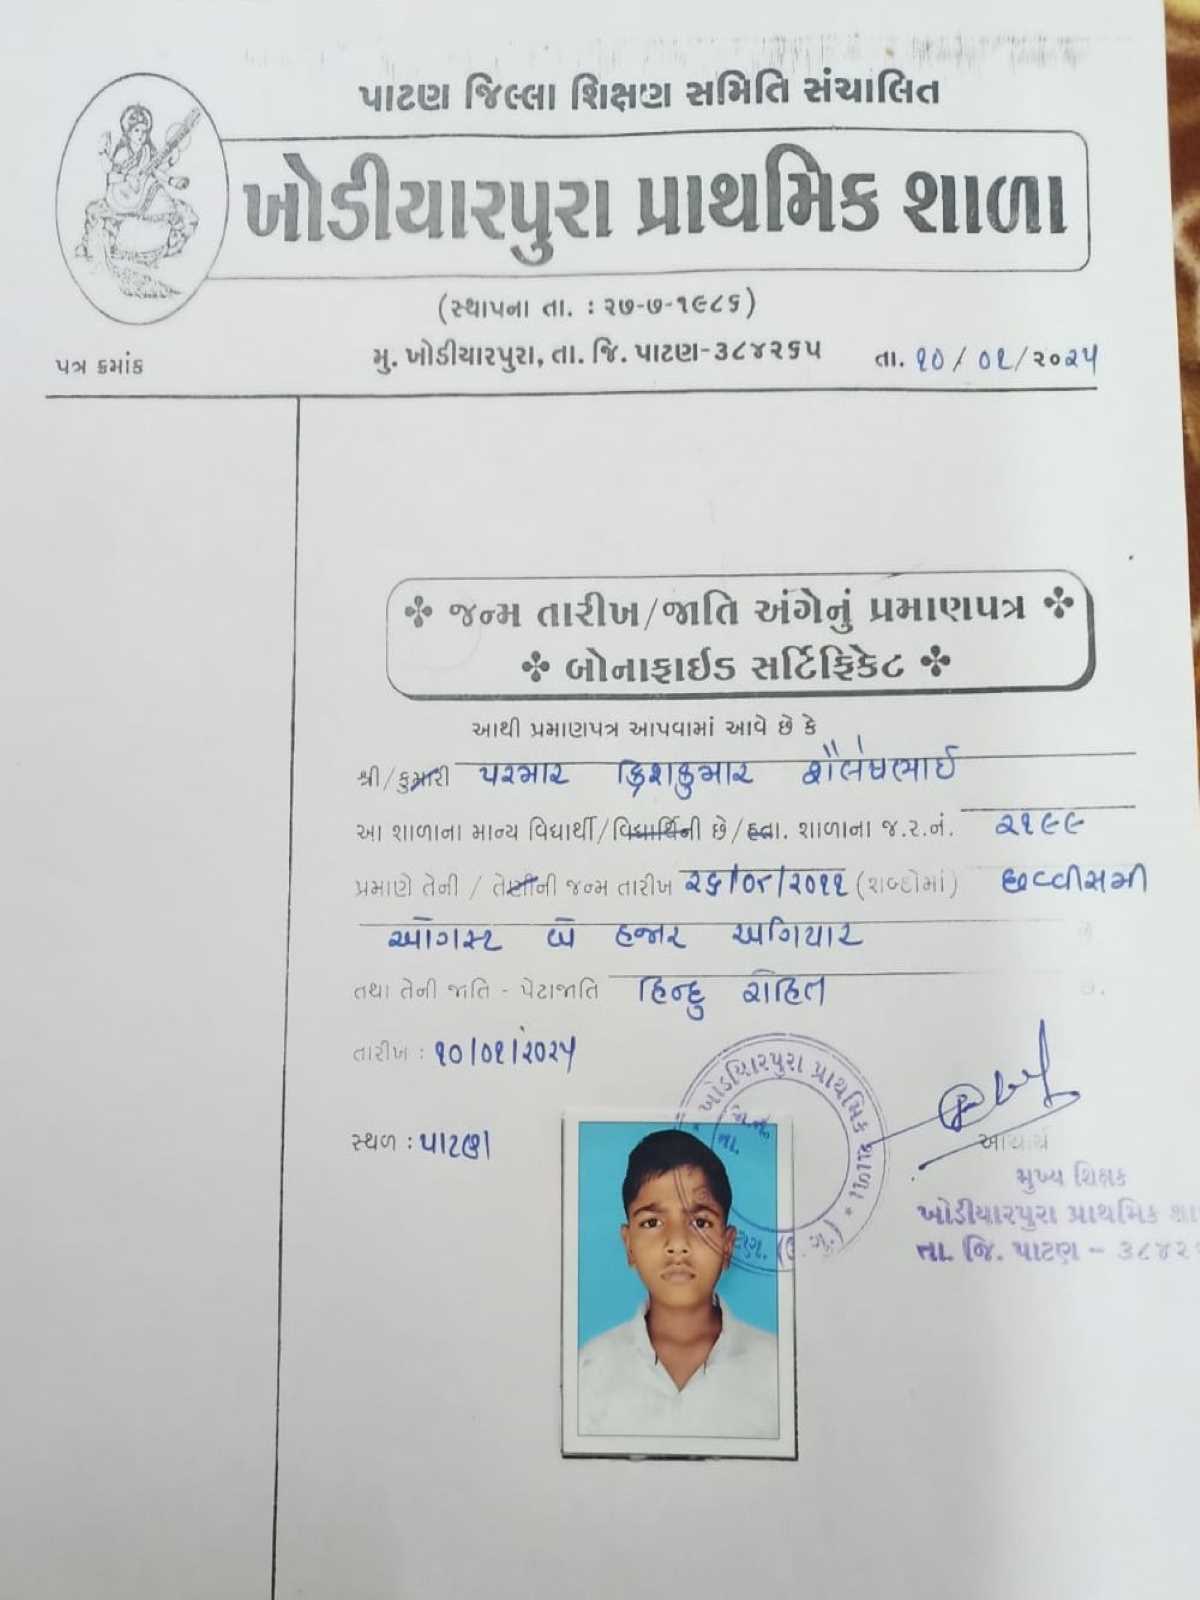 પાટણ જિલ્લા શિક્ષણ સમિતિ સંચાલિત
ખોડીયારપુરા પ્રાથમિક શાળા
(સ્થાપના તા. : ૨૭-૭-૧૯૮૬)
મુ. ખોડીયારપુરા, તા. જિ. પાટણ-૩૮૪૨૬૫
પત્ર ક્રમાંક
તા. ૧૦/૦૧/૨૦૨૫
❖ જન્મ તારીખ/જાતિ અંગેનું પ્રમાણપત્ર ❖
❖ બોનાફાઈડ સર્ટિફિકેટ ❖
આથી પ્રમાણપત્ર આપવામાં આવે છે કે
શ્રી/કુમારી પરમાર ક્રિશકુમાર શૈલેષભાઈ
આ શાળાના માન્ય વિદ્યાર્થી/વિદ્યાર્થિની છે/હતા. શાળાના જ.ર.નં. ૨૧૯૯
પ્રમાણે તેની / તેણીની જન્મ તારીખ ૨૬/૦૮/૨૦૧૧ (શબ્દોમાં) છવ્વીસમી
ઓગસ્ટ બે હજાર અગિયાર છે
તથા તેની જાતિ - પેટાજાતિ હિન્દુ રોહિત છે.
તારીખ : ૧૦/૦૧/૨૦૨૫
સ્થળ : પાટણ
ખોડીયારપુરા પ્રાથમિક શાળા
જી. પાટણ. (ઉ. ગુ.)
આચાર્ય
મુખ્ય શિક્ષક
ખોડીયારપુરા પ્રાથમિક શા
તા. જિ. પાટણ - ૩૮૪૨